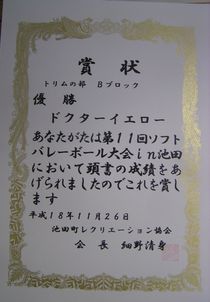 賞状
トリムの部 Bブロック
優勝
ドクターイエロー
あなたがたは第11回ソフト
バレーボール大会in池田
において頭書の成績をあ
げられましたのでこれを賞し
ます
平成18年11月26日
池田町レクリエーション協会
会長 細野清身